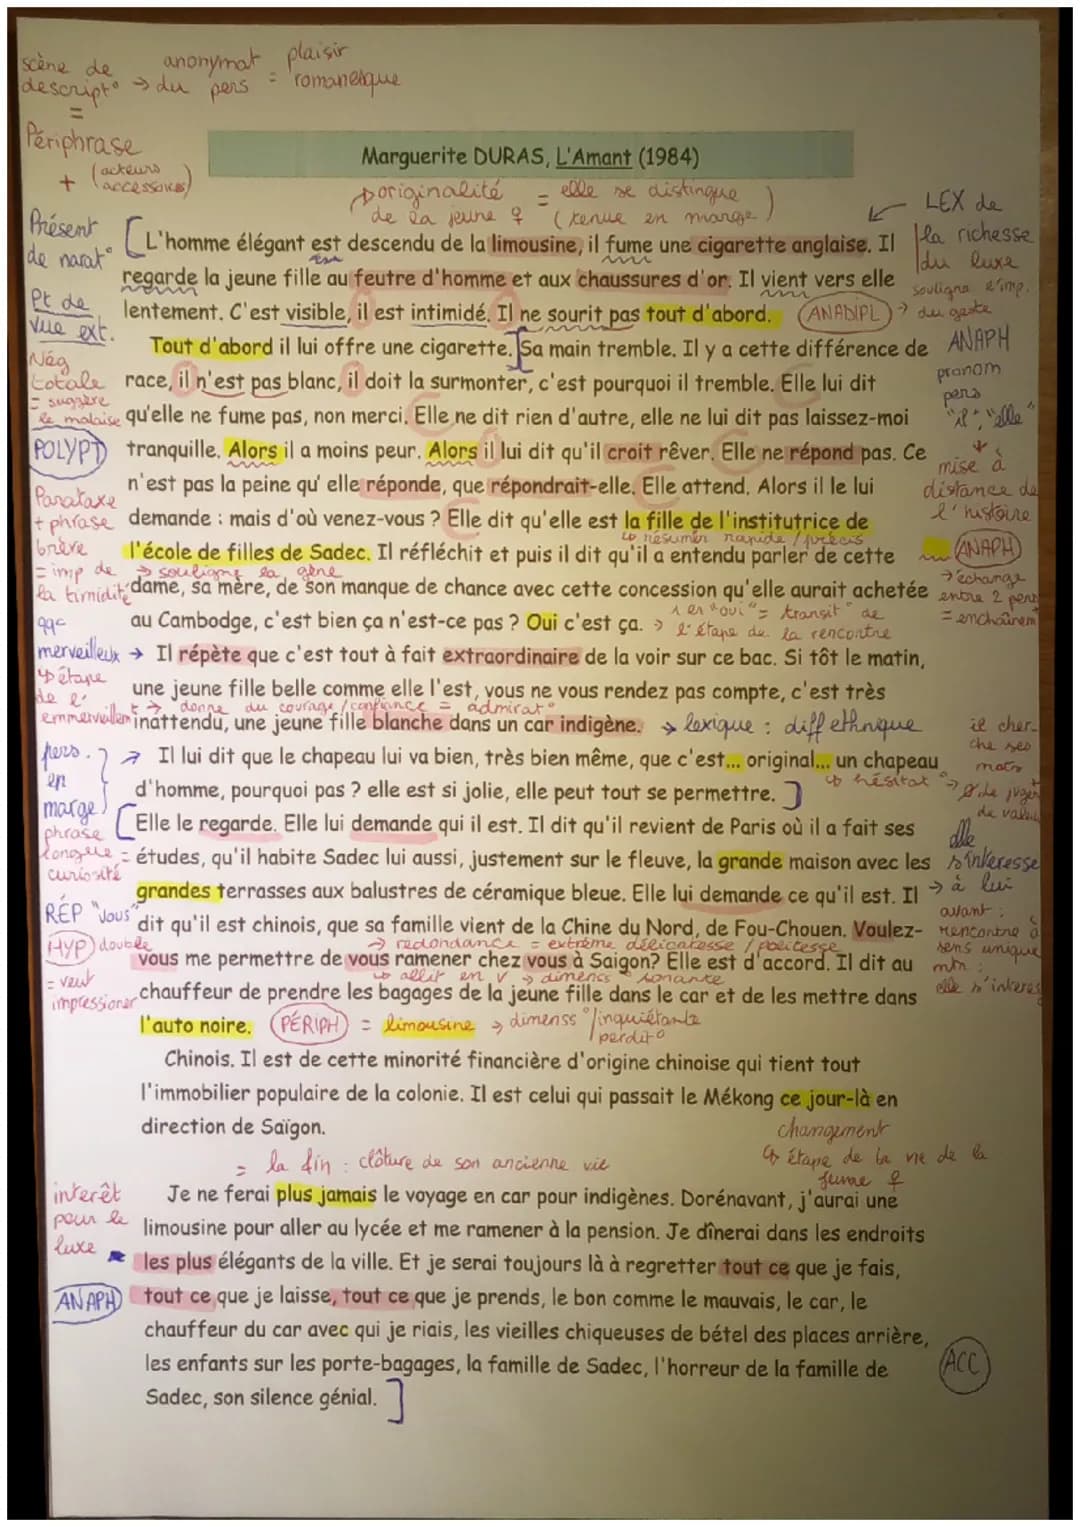 scène de
descript° → du pers = romanesque
anonymat plaisir
=
Périphrase
+ (acteurs accessoires)
Marguerite DURAS, L'Amant (1984)
↳ originalité = elle se distingue
de la jeune ♀ (tenue en marge)
LEX de
la richesse
du luxe
souligne l'imp.
du geste
Présent
de narat°
Pt de
vue ext.
Nég
totale
= suggère
le malaise
POLYPT
Parataxe
+ phrase
brève
= imp de
la timidité
[L'homme élégant est descendu de la limousine, il fume une cigarette anglaise. Il
regarde la jeune fille au feutre d'homme et aux chaussures d'or. Il vient vers elle
lentement. C'est visible, il est intimidé. Il ne sourit pas tout d'abord. ANADIPL →
Tout d'abord il lui offre une cigarette.] Sa main tremble. Il y a cette différence de
race, il n'est pas blanc, il doit la surmonter, c'est pourquoi il tremble. Elle lui dit
qu'elle ne fume pas, non merci. Elle ne dit rien d'autre, elle ne lui dit pas laissez-moi
tranquille. Alors il a moins peur. Alors il lui dit qu'il croit rêver. Elle ne répond pas. Ce
n'est pas la peine qu' elle réponde, que répondrait-elle. Elle attend. Alors il le lui
demande : mais d'où venez-vous ? Elle dit qu'elle est la fille de l'institutrice de
↳ résumer rapide / précis
l'école de filles de Sadec. Il réfléchit et puis il dit qu'il a entendu parler de cette
→ souligne la gêne
dame, sa mère, de son manque de chance avec cette concession qu'elle aurait achetée
au Cambodge, c'est bien ça n'est-ce pas ? Oui c'est ça. →
1 er "oui" = transit° de
l'étape de la rencontre
ANAPH
pronom
pers
"il", "elle"
↓
mise à
distance de
l'histoire
ANAPH
→ échange
entre 2 pers
= enchaînem
qqc
merveilleux →
↳ étape
de l'
Il répète que c'est tout à fait extraordinaire de la voir sur ce bac. Si tôt le matin,
une jeune fille belle comme elle l'est, vous ne vous rendez pas compte, c'est très
→ donne du courage / confiance = admirat°
inattendu, une jeune fille blanche dans un car indigène. → lexique : diff ethnique
pers.
en
marge
→ Il lui dit que le chapeau lui va bien, très bien même, que c'est... original... un chapeau
↳ hésitat° →
d'homme, pourquoi pas ? elle est si jolie, elle peut tout se permettre.]
il cher-
che ses
mots
phrase
longue =
curiosité
[Elle le regarde. Elle lui demande qui il est. Il dit qu'il revient de Paris où il a fait ses
études, qu'il habite Sadec lui aussi, justement sur le fleuve, la grande maison avec les
grandes terrasses aux balustres de céramique bleue. Elle lui demande ce qu'il est. Il
dit qu'il est chinois, que sa famille vient de la Chine du Nord, de Fou-Chouen. Voulez-
→ redondance = extrême délicatesse / politesse
vous me permettre de vous ramener chez vous à Saigon? Elle est d'accord. Il dit au
↳ allit en v → dimens° sonante
chauffeur de prendre les bagages de la jeune fille dans le car et de les mettre dans
l'auto noire. PÉRIPH = limousine → dimenss° / inquiétante
perdit°
elle
s'intéresse
→ à lui
avant :
rencontre à
sens unique
mtn :
elle s'intéres
RÉP "Vous"
HYP double
= veut
impressioner
Chinois. Il est de cette minorité financière d'origine chinoise qui tient tout
l'immobilier populaire de la colonie. Il est celui qui passait le Mékong ce jour-là en
direction de Saïgon.
changement
↳ étape de la vie de la
jeune ♀
= la fin : clôture de son ancienne vie
interêt
pour le
luxe
ANAPH
Je ne ferai plus jamais le voyage en car pour indigènes. Dorénavant, j'aurai une
limousine pour aller au lycée et me ramener à la pension. Je dînerai dans les endroits
les plus élégants de la ville. Et je serai toujours là à regretter tout ce que je fais,
tout ce que je laisse, tout ce que je prends, le bon comme le mauvais, le car, le
chauffeur du car avec qui je riais, les vieilles chiqueuses de bétel des places arrière,
les enfants sur les porte-bagages, la famille de Sadec, l'horreur de la famille de
Sadec, son silence génial.]
ACC